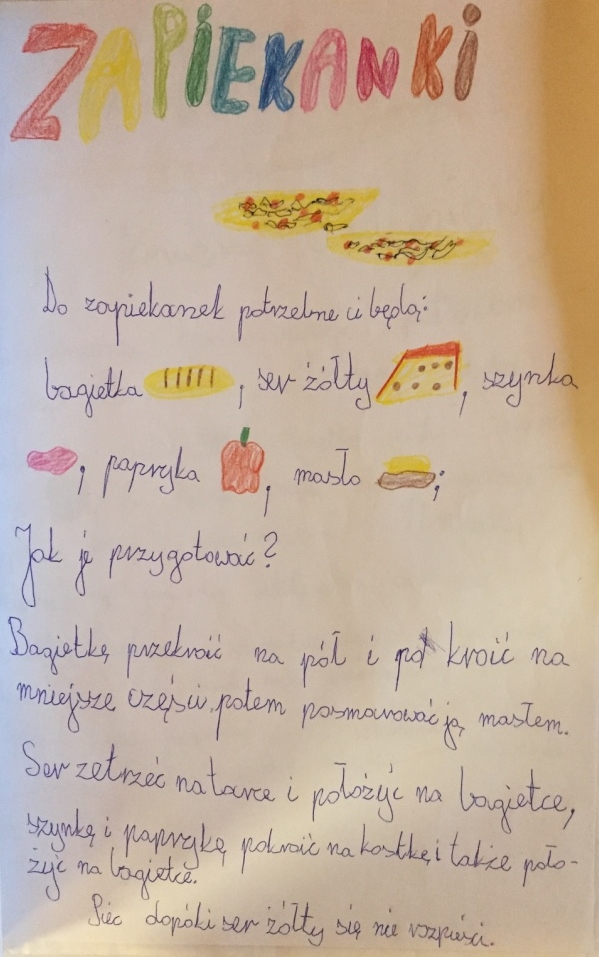 ZAPIEKANKI
Do zapiekanek potrzebne ci będą:
bagietka , ser żółty , szynka
, papryka , masło ;
Jak je przygotować?
Bagietkę przekroić na pół i po kroić na
mniejsze części, potem posmarować ją masłem.
Ser zetrzeć na tarce i położyć na bagietce,
szynkę i paprykę pokroić na kostkę i także poło-
żyć na bagietce.
Piec dopóki ser żółty się nie rozpuści.